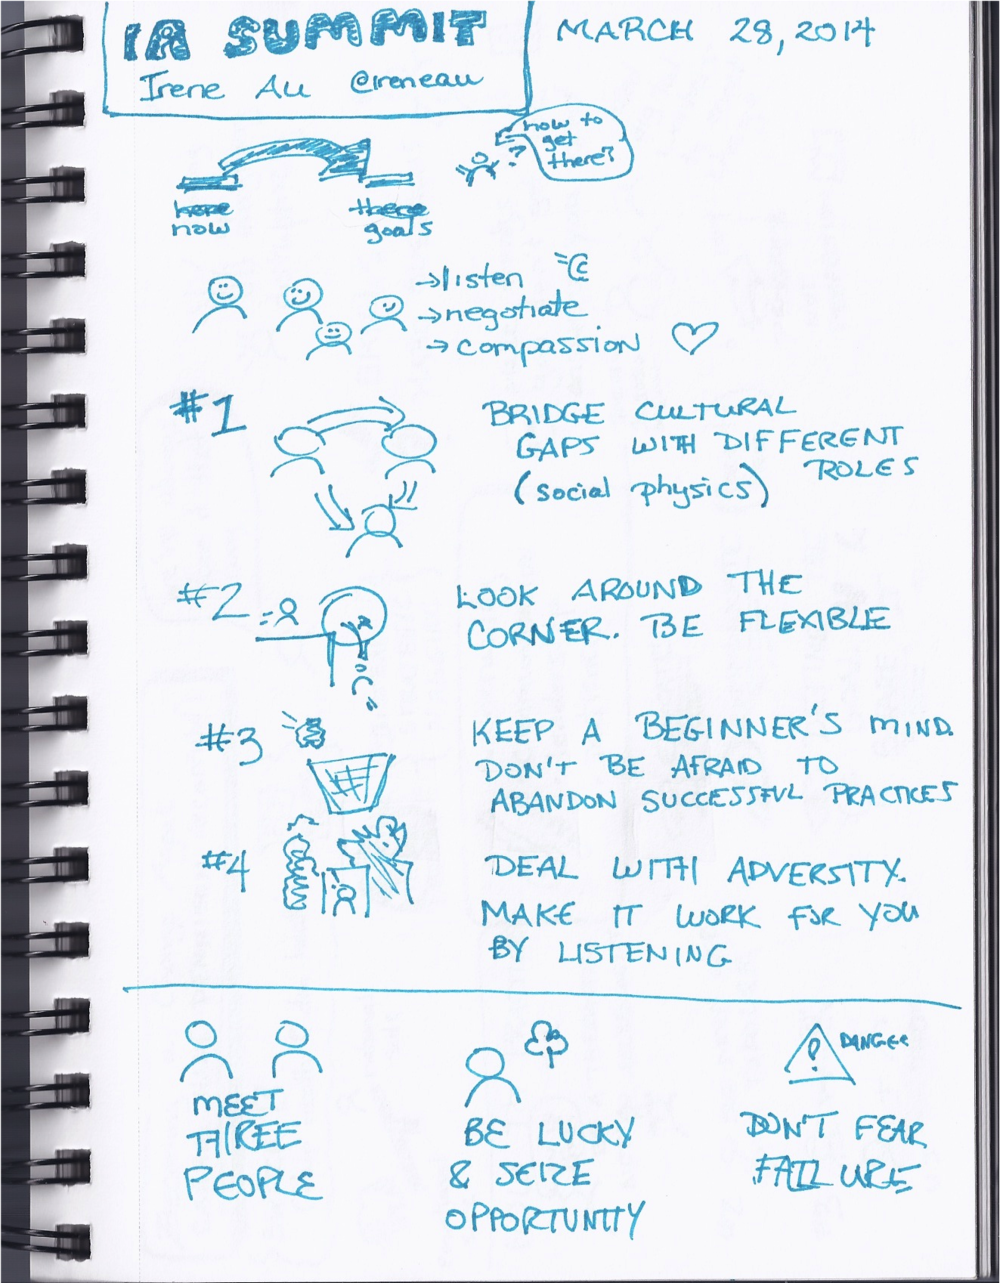 IA SUMMIT
MARCH 28, 2014
Irene Au @ireneau
how to
get
there?
?
here
now
there
goals
→listen
→negotiate
→compassion
#1
BRIDGE CULTURAL
GAPS WITH DIFFERENT
ROLES
(social physics)
#2
LOOK AROUND THE
CORNER. BE FLEXIBLE
#3
KEEP A BEGINNER'S MIND.
DON'T BE AFRAID TO
ABANDON SUCCESSFUL PRACTICES
#4
DEAL WITH ADVERSITY.
MAKE IT WORK FOR YOU
BY LISTENING
MEET
THREE
PEOPLE
BE LUCKY
& SEIZE
OPPORTUNITY
?
DANGER
DON'T FEAR
FAILURE